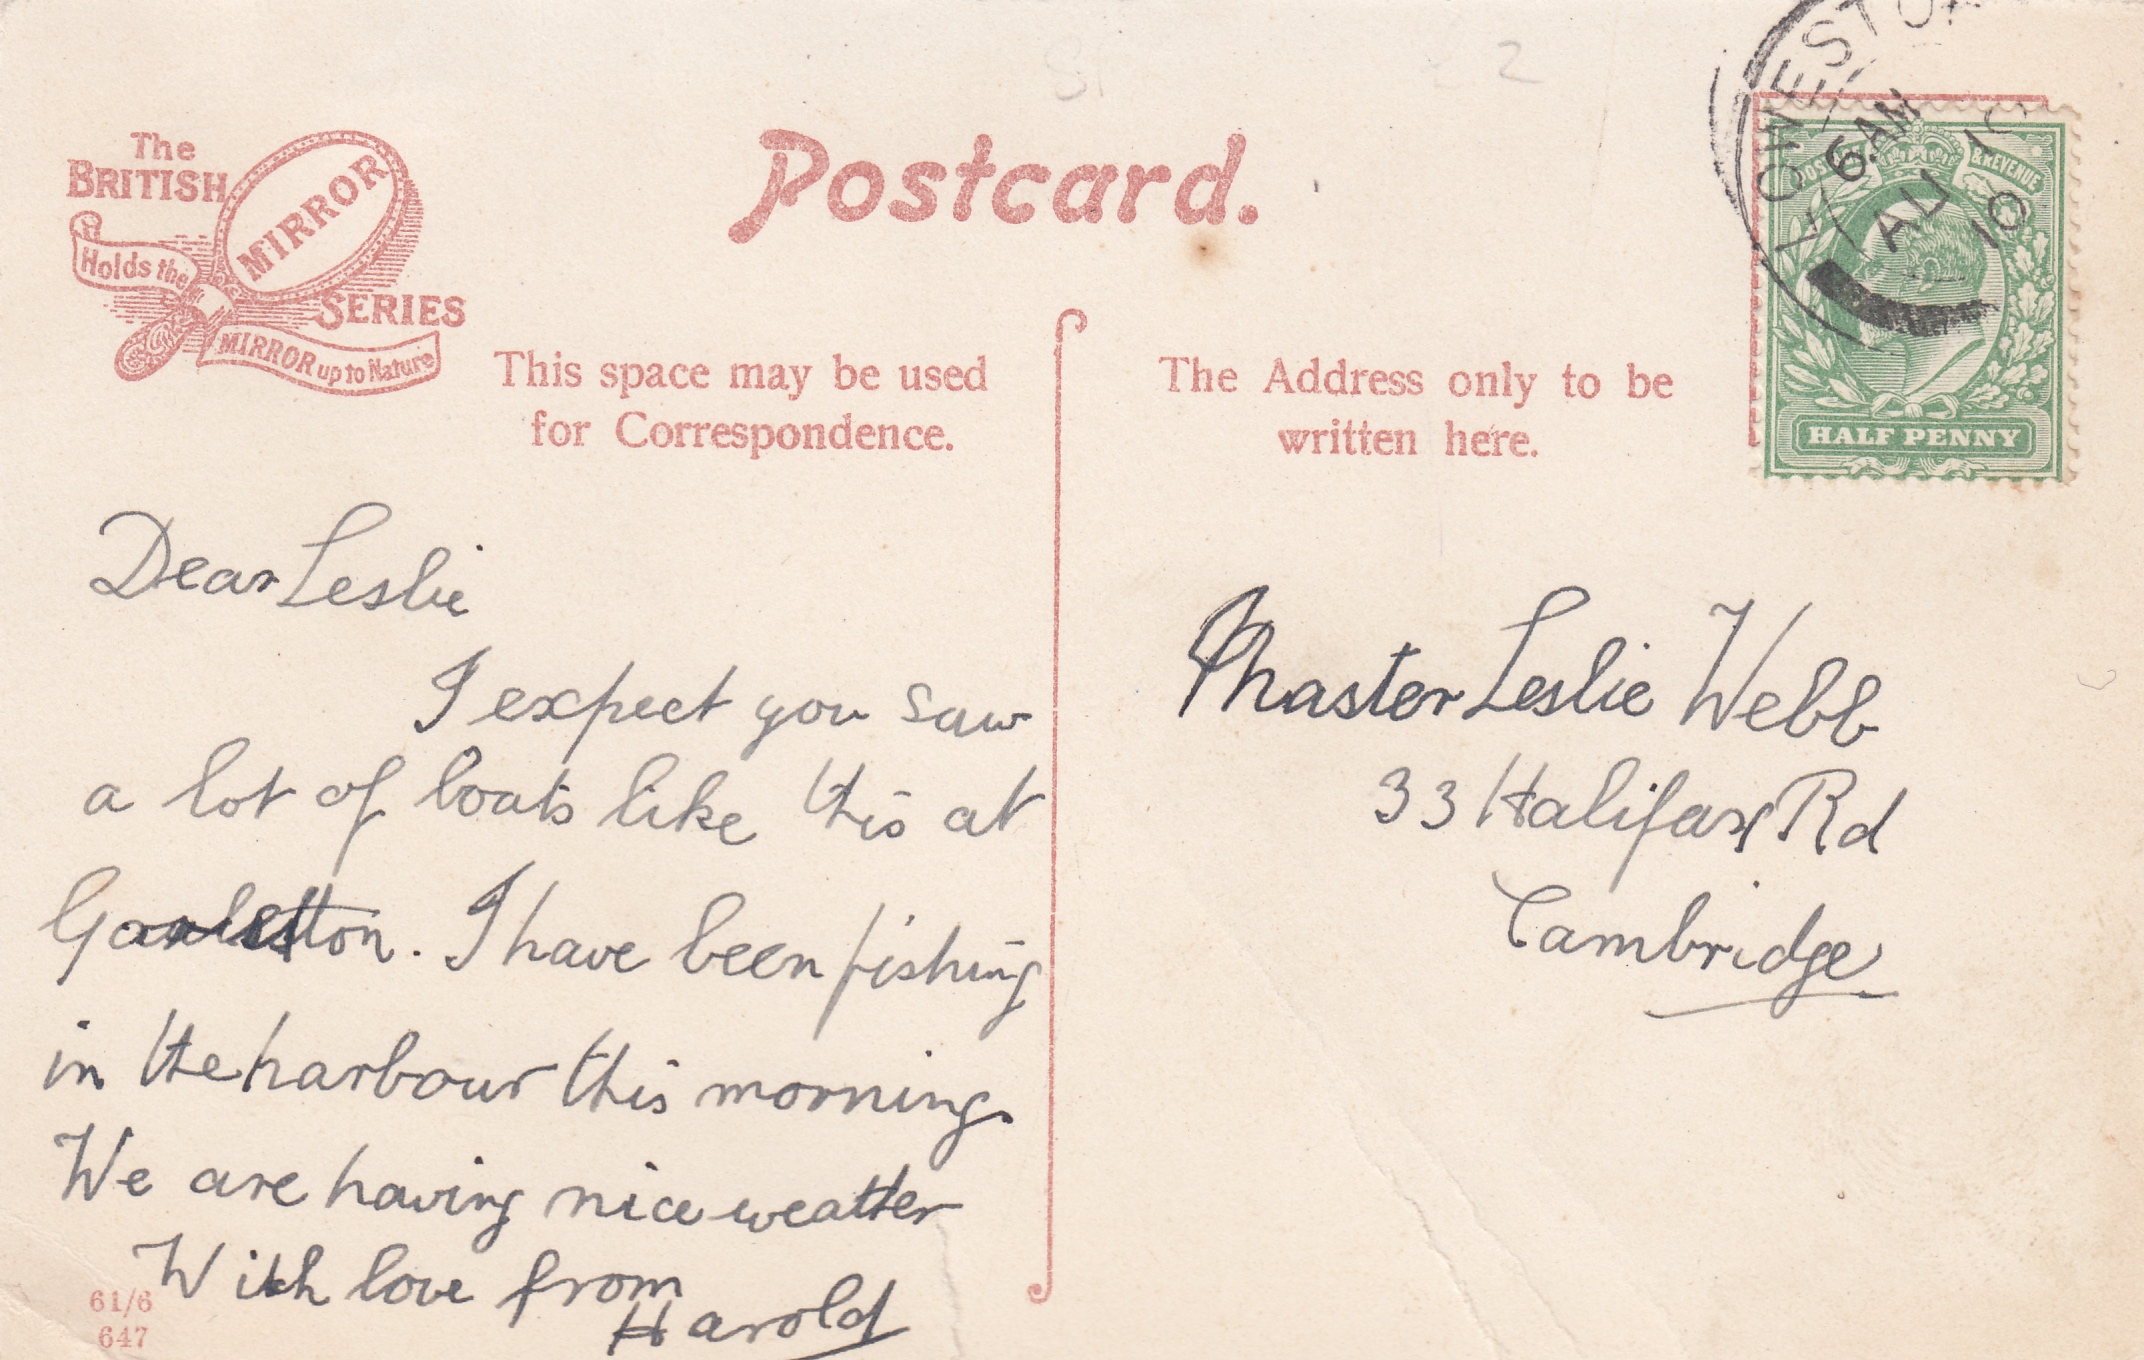 The
BRITISH
MIRROR
SERIES
Holds the
MIRROR up to Nature
Postcard.
This space may be used
for Correspondence.
The Address only to be
written here.
LOWESTO
6 AM
AU 10
10
POSTAGE & REVENUE
HALF PENNY
Dear Leslie
I expect you saw
a lot of boats like this at
Gorleston. I have been fishing
in the harbour this morning.
We are having nice weather
With love from
Harold
Master Leslie Webb
33 Halifax Rd
Cambridge
61/6
647